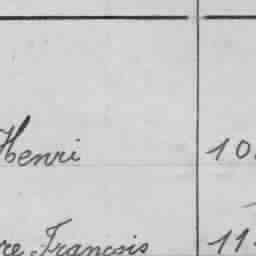 Henri 10.
re François 11.